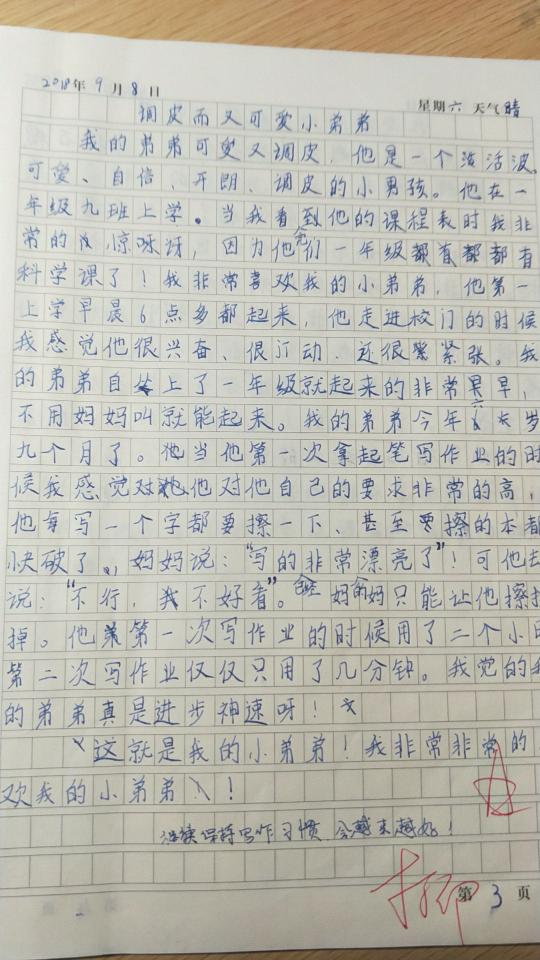 2018年9月8日
星期六 天气晴
调皮而又可爱小弟弟
我的弟弟可爱又调皮，他是一个活波、
可爱、自信、开朗、调皮的小男孩。他在一
年级九班上学。当我看到他的课程表时我非
常的惊呀讶，因为他们一年级都有都都有
科学课了！我非常喜欢我的小弟弟，他第一
上学早晨6点多都起来，他走进校门的时候
我感觉他很兴奋、很汀动、还很紧张。我
的弟弟自上了一年级就起来的非常早，
不用妈妈叫就能起来。我的弟弟今年六岁
九个月了。当他第一次拿起笔写作业的时
候我感觉他对他自己的要求非常的高，
他每写一个字都要擦一下、甚至擦的本都
快破了，妈妈说：“写的非常漂亮了”！可他去
说：“不行，我不好看”。妈妈只能让他擦
掉。他第一次写作业的时候用了二个小时
第二次写作业仅仅只用了几分钟。我觉的我
的弟弟真是进步神速呀！
这就是我的小弟弟！我非常非常的
欢我的小弟弟！
继续保持写作习惯 会越来越好！
第3页